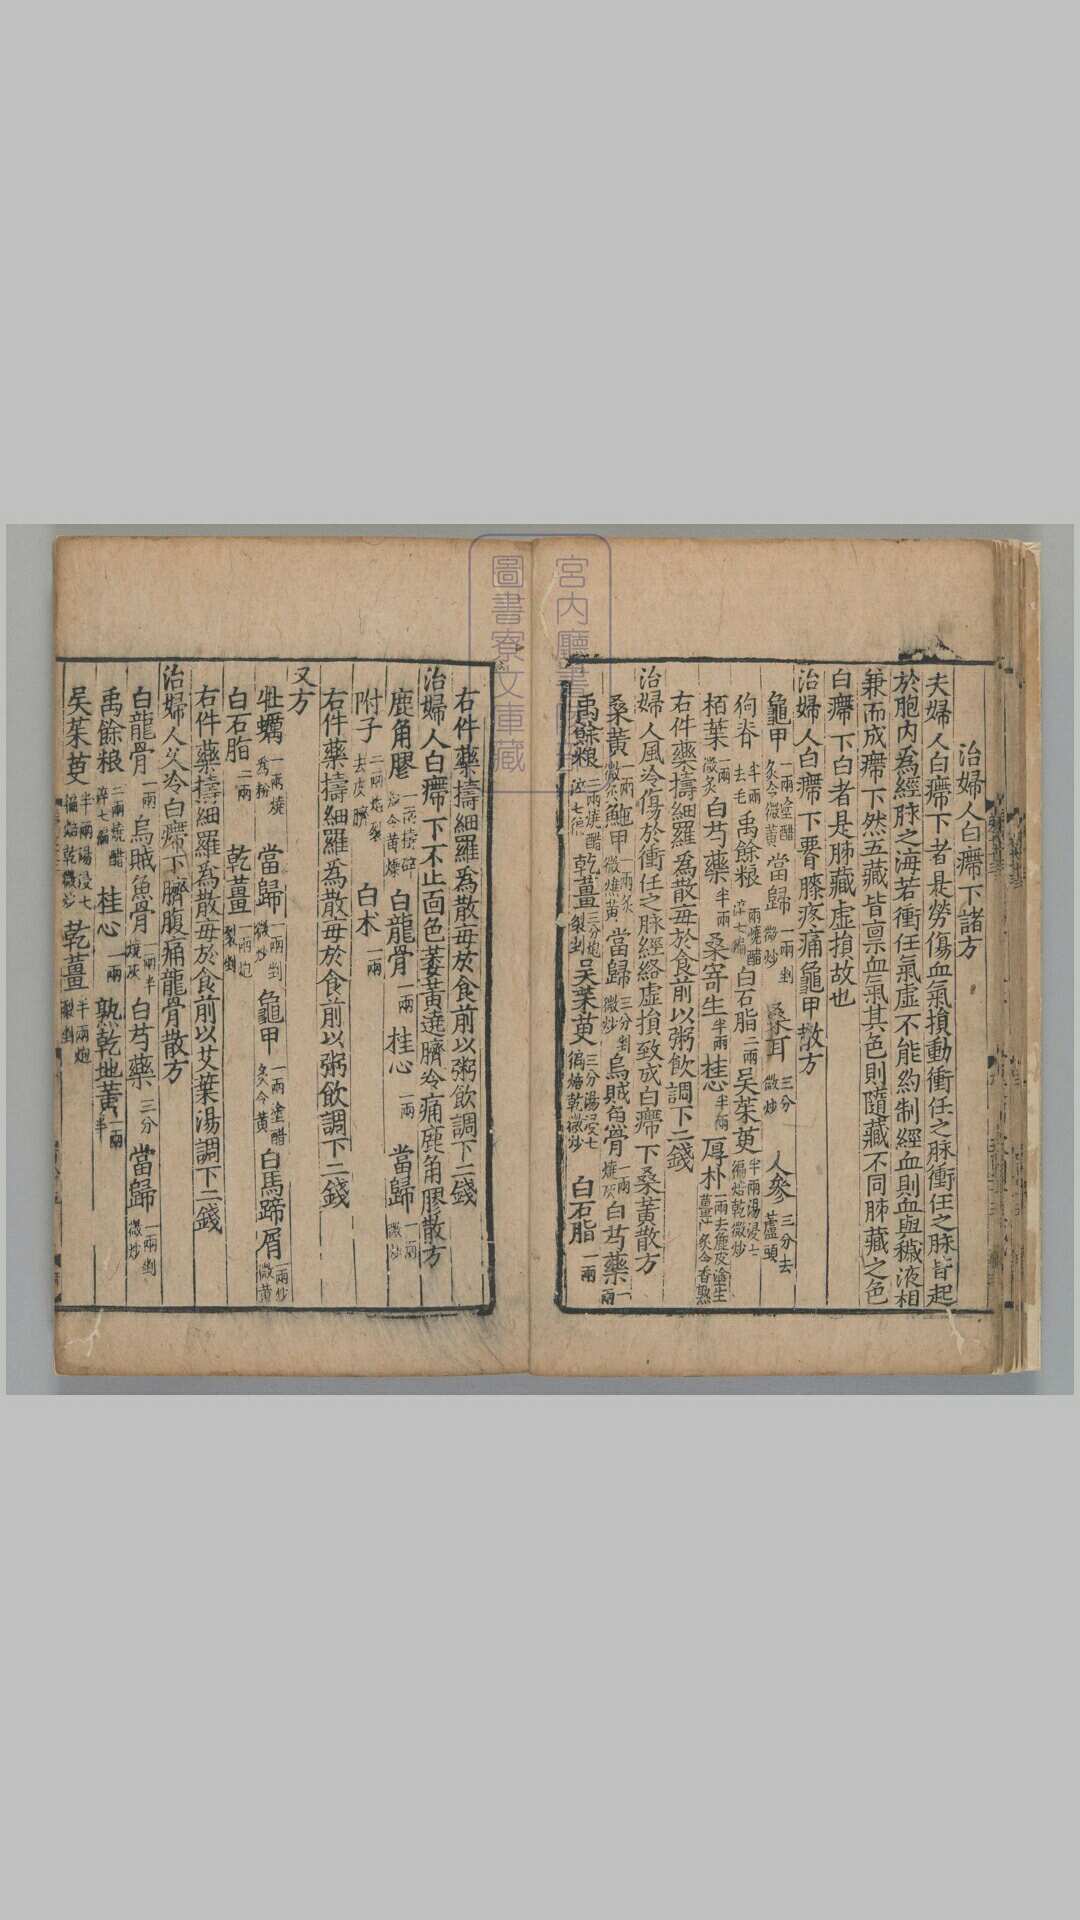 治婦人白㿃下諸方
夫婦人白㿃下者是勞傷血氣損動衝任之脉衝任之脉皆起
於胞内為經脉之海若衝任氣虛不能約制經血則血與穢液相
兼而成㿃下然五藏皆禀血氣其色則隨藏不同肺藏之色
白㿃下白者是肺藏虛損故也
治婦人白㿃下腰膝疼痛龜甲散方
龜甲一兩塗醋炙令微黃 當歸一兩剉微炒 桑耳三分微炒 人參三分去蘆頭
狗脊半兩去毛 禹餘粮二兩燒醋淬七徧 白石脂二兩 吳茱萸半兩湯浸七徧焙乾微炒
栢葉一兩微炙 白芍藥半兩 桑寄生半兩 桂心半兩 厚朴一兩去麁皮塗生薑汁炙令香熟
右件藥擣細羅爲散每於食前以粥飲調下二錢
治婦人風冷傷於衝任之脉經絡虛損致成白㿃下桑黃散方
桑黃一兩微炙 鮑甲一兩炙微燋黃 當歸三分剉微炒 烏賊魚骨一兩燒灰 白芍藥一兩
禹餘粮二兩燒醋淬七徧 乾薑三分炮裂剉 吳茱萸三分湯浸七徧焙乾微炒 白石脂一兩
右件藥擣細羅爲散每於食前以粥飲調下二錢
治婦人白㿃下不止面色萎黃遶臍冷痛鹿角膠散方
鹿角膠一兩擣碎炒令黃燥 白龍骨一兩 桂心一兩 當歸一兩微炒
附子二兩炮裂去皮臍 白朮一兩
右件藥擣細羅爲散每於食前以粥飲調下二錢
又方
牡蠣一兩燒為粉 當歸一兩剉微炒 龜甲一兩塗醋炙令黃 白馬蹄屑一兩炒微黃
白石脂二兩 乾薑一兩炮裂剉
右件藥擣細羅爲散每於食前以艾葉湯調下二錢
治婦人久冷白㿃下臍腹痛龍骨散方
白龍骨一兩 烏賊魚骨一兩半燒灰 白芍藥三分 當歸一兩剉微炒
禹餘粮二兩燒醋淬七徧 桂心一兩 熟乾地黃一兩半
吳茱萸半兩湯浸七徧焙乾微炒 乾薑半兩炮裂剉
圖書寮文庫藏